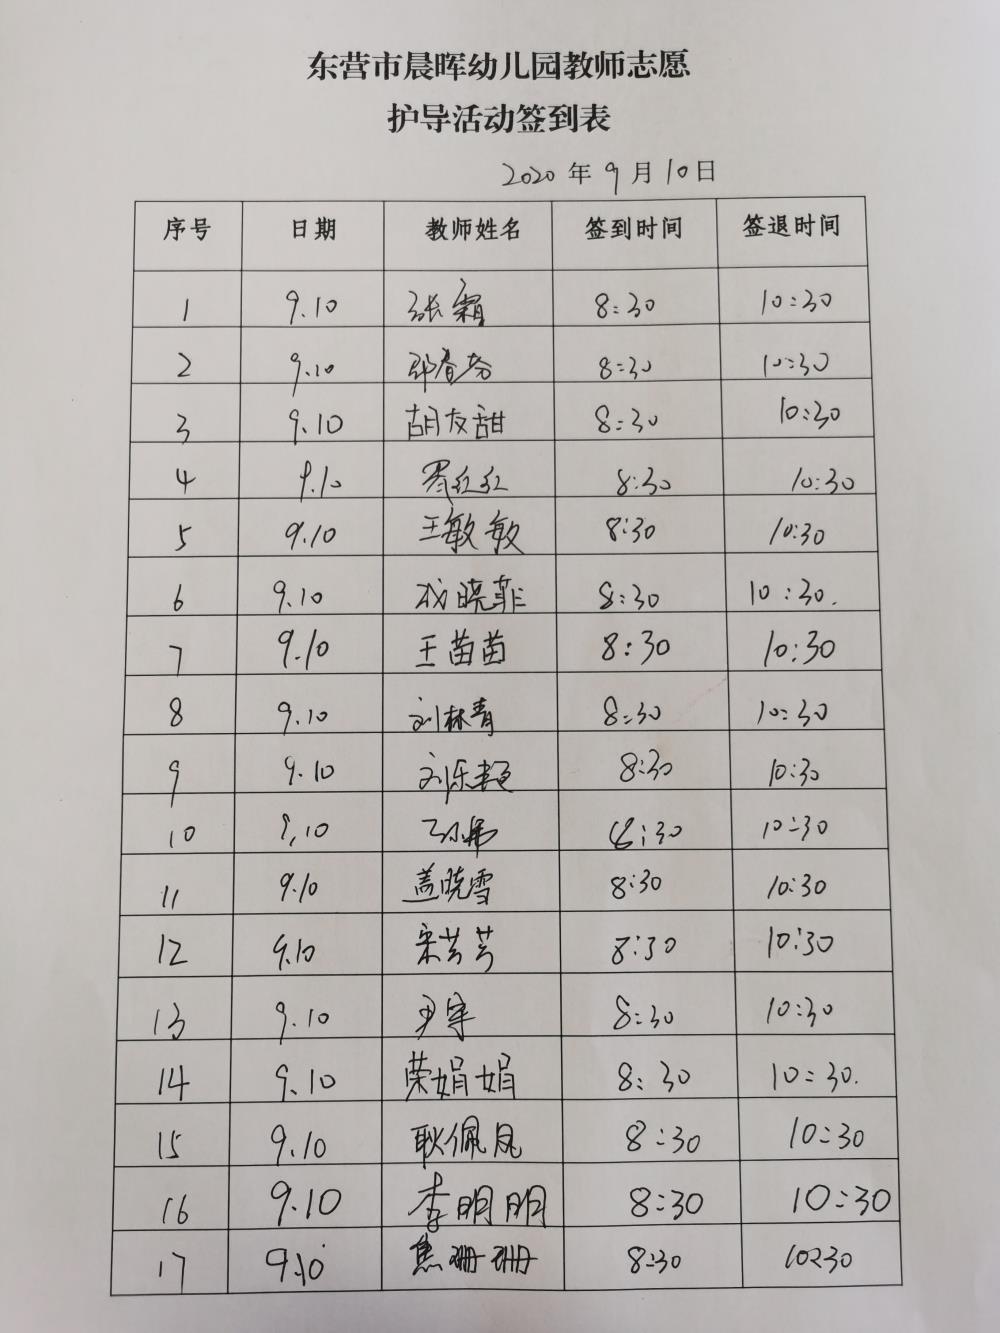 东营市晨晖幼儿园教师志愿
护导活动签到表
2020 年 9 月 10 日
序号 日期 教师姓名 签到时间 签退时间
1 9.10 张霜 8:30 10:30
2 9.10 8:30 10:30
3 9.10 胡友甜 8:30 10:30
4 9.10 8:30 10:30
5 9.10 王敏敏 8:30 10:30
6 9.10 晓菲 8:30 10:30.
7 9.10 王苗苗 8:30 10:30
8 9.10 刘林青 8:30 10:30
9 9.10 刘乐 8:30 10:30
10 9.10 8:30 10:30
11 9.10 盖晓雪 8:30 10:30
12 9.10 宋芳芳 8:30 10:30
13 9.10 尹宇 8:30 10:30
14 9.10 荣娟娟 8:30 10:30.
15 9.10 耿佩凤 8:30 10:30
16 9.10 李明明 8:30 10:30
17 9.10 焦珊珊 8:30 10:30